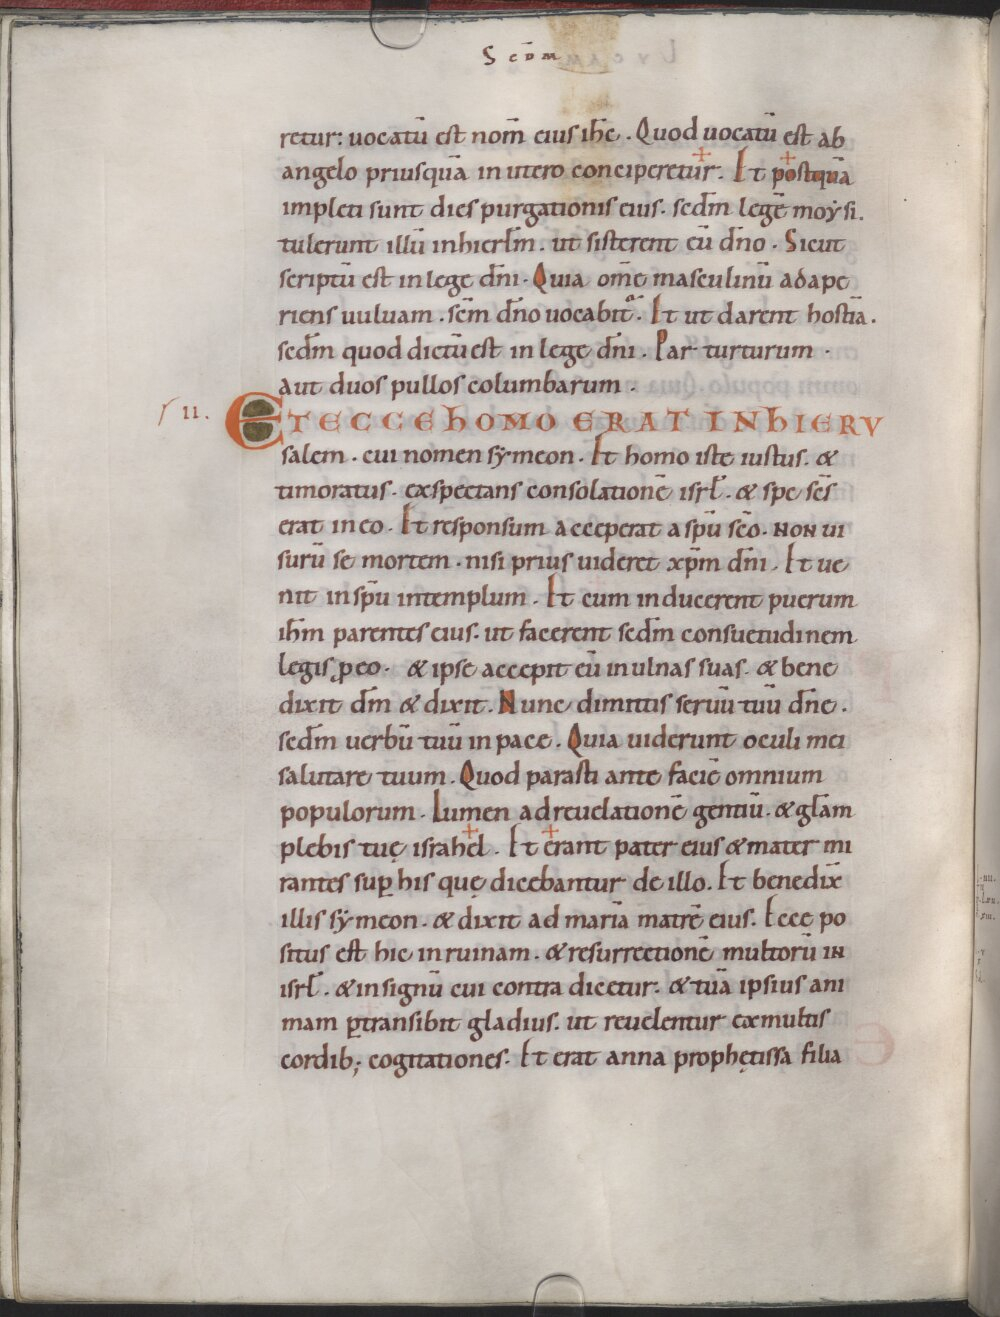 Scdm̄
retur: uocatū est nom̄ eius ih̄c . Quod uocatū est ab
angelo priusquā in utero conciperetur. Et postquā
impleti sunt dies purgationis eius. secd̄m legē moẏsi.
tulerunt illū in hierlm̄. ut sisterent eū dn̄o. Sicut
scriptū est in lege dn̄i. Quia om̄e masculinū adape
riens uuluam. scm̄ dn̄o uocabit̄. Et ut darent hostiā.
secd̄m quod dictū est in lege dn̄i. Par turturum
aut duos pullos columbarum.
II. ET ECCE HOMO ERAT IN HIERV
salem. cui nomen sẏmeon. Et homo iste iustus. &
timoratus. exspectans consolationē isrl̄. & sps̄ scs̄
erat in eo. Et responsum acceperat a spū sc̄o. NON ui
surū se mortem. nisi prius uideret xp̄m dn̄i. Et ue
nit in spū in templum. Et cum inducerent puerum
ih̄m parentes eius. ut facerent secd̄m consuetudinem
legis ꝓ eo. & ipse accepit eū in ulnas suas. & bene
dixit dm̄ & dixit. Nunc dimittis seruū tuū dn̄e.
secd̄m uerbū tuū in pace. Quia uiderunt oculi mei
salutare tuum. Quod parasti ante faciē omnium
populorum. Lumen ad reuelationē gentiū. & glām
plebis tuę israhel. Et erant pater eius & mater mi
rantes suꝑ his quę dicebantur de illo. Et benedix̄
illis sẏmeon. & dixit ad mariā matrē eius. Ecce po
situs est hic in ruinam. & resurrectionē multorū IN
isrl̄. & in signū cui contradicetur. & tuā ipsius ani
mam ꝑtransibit gladius. ut reuelentur ex multis
cordib; cogitationes. Et erat anna prophętissa filia